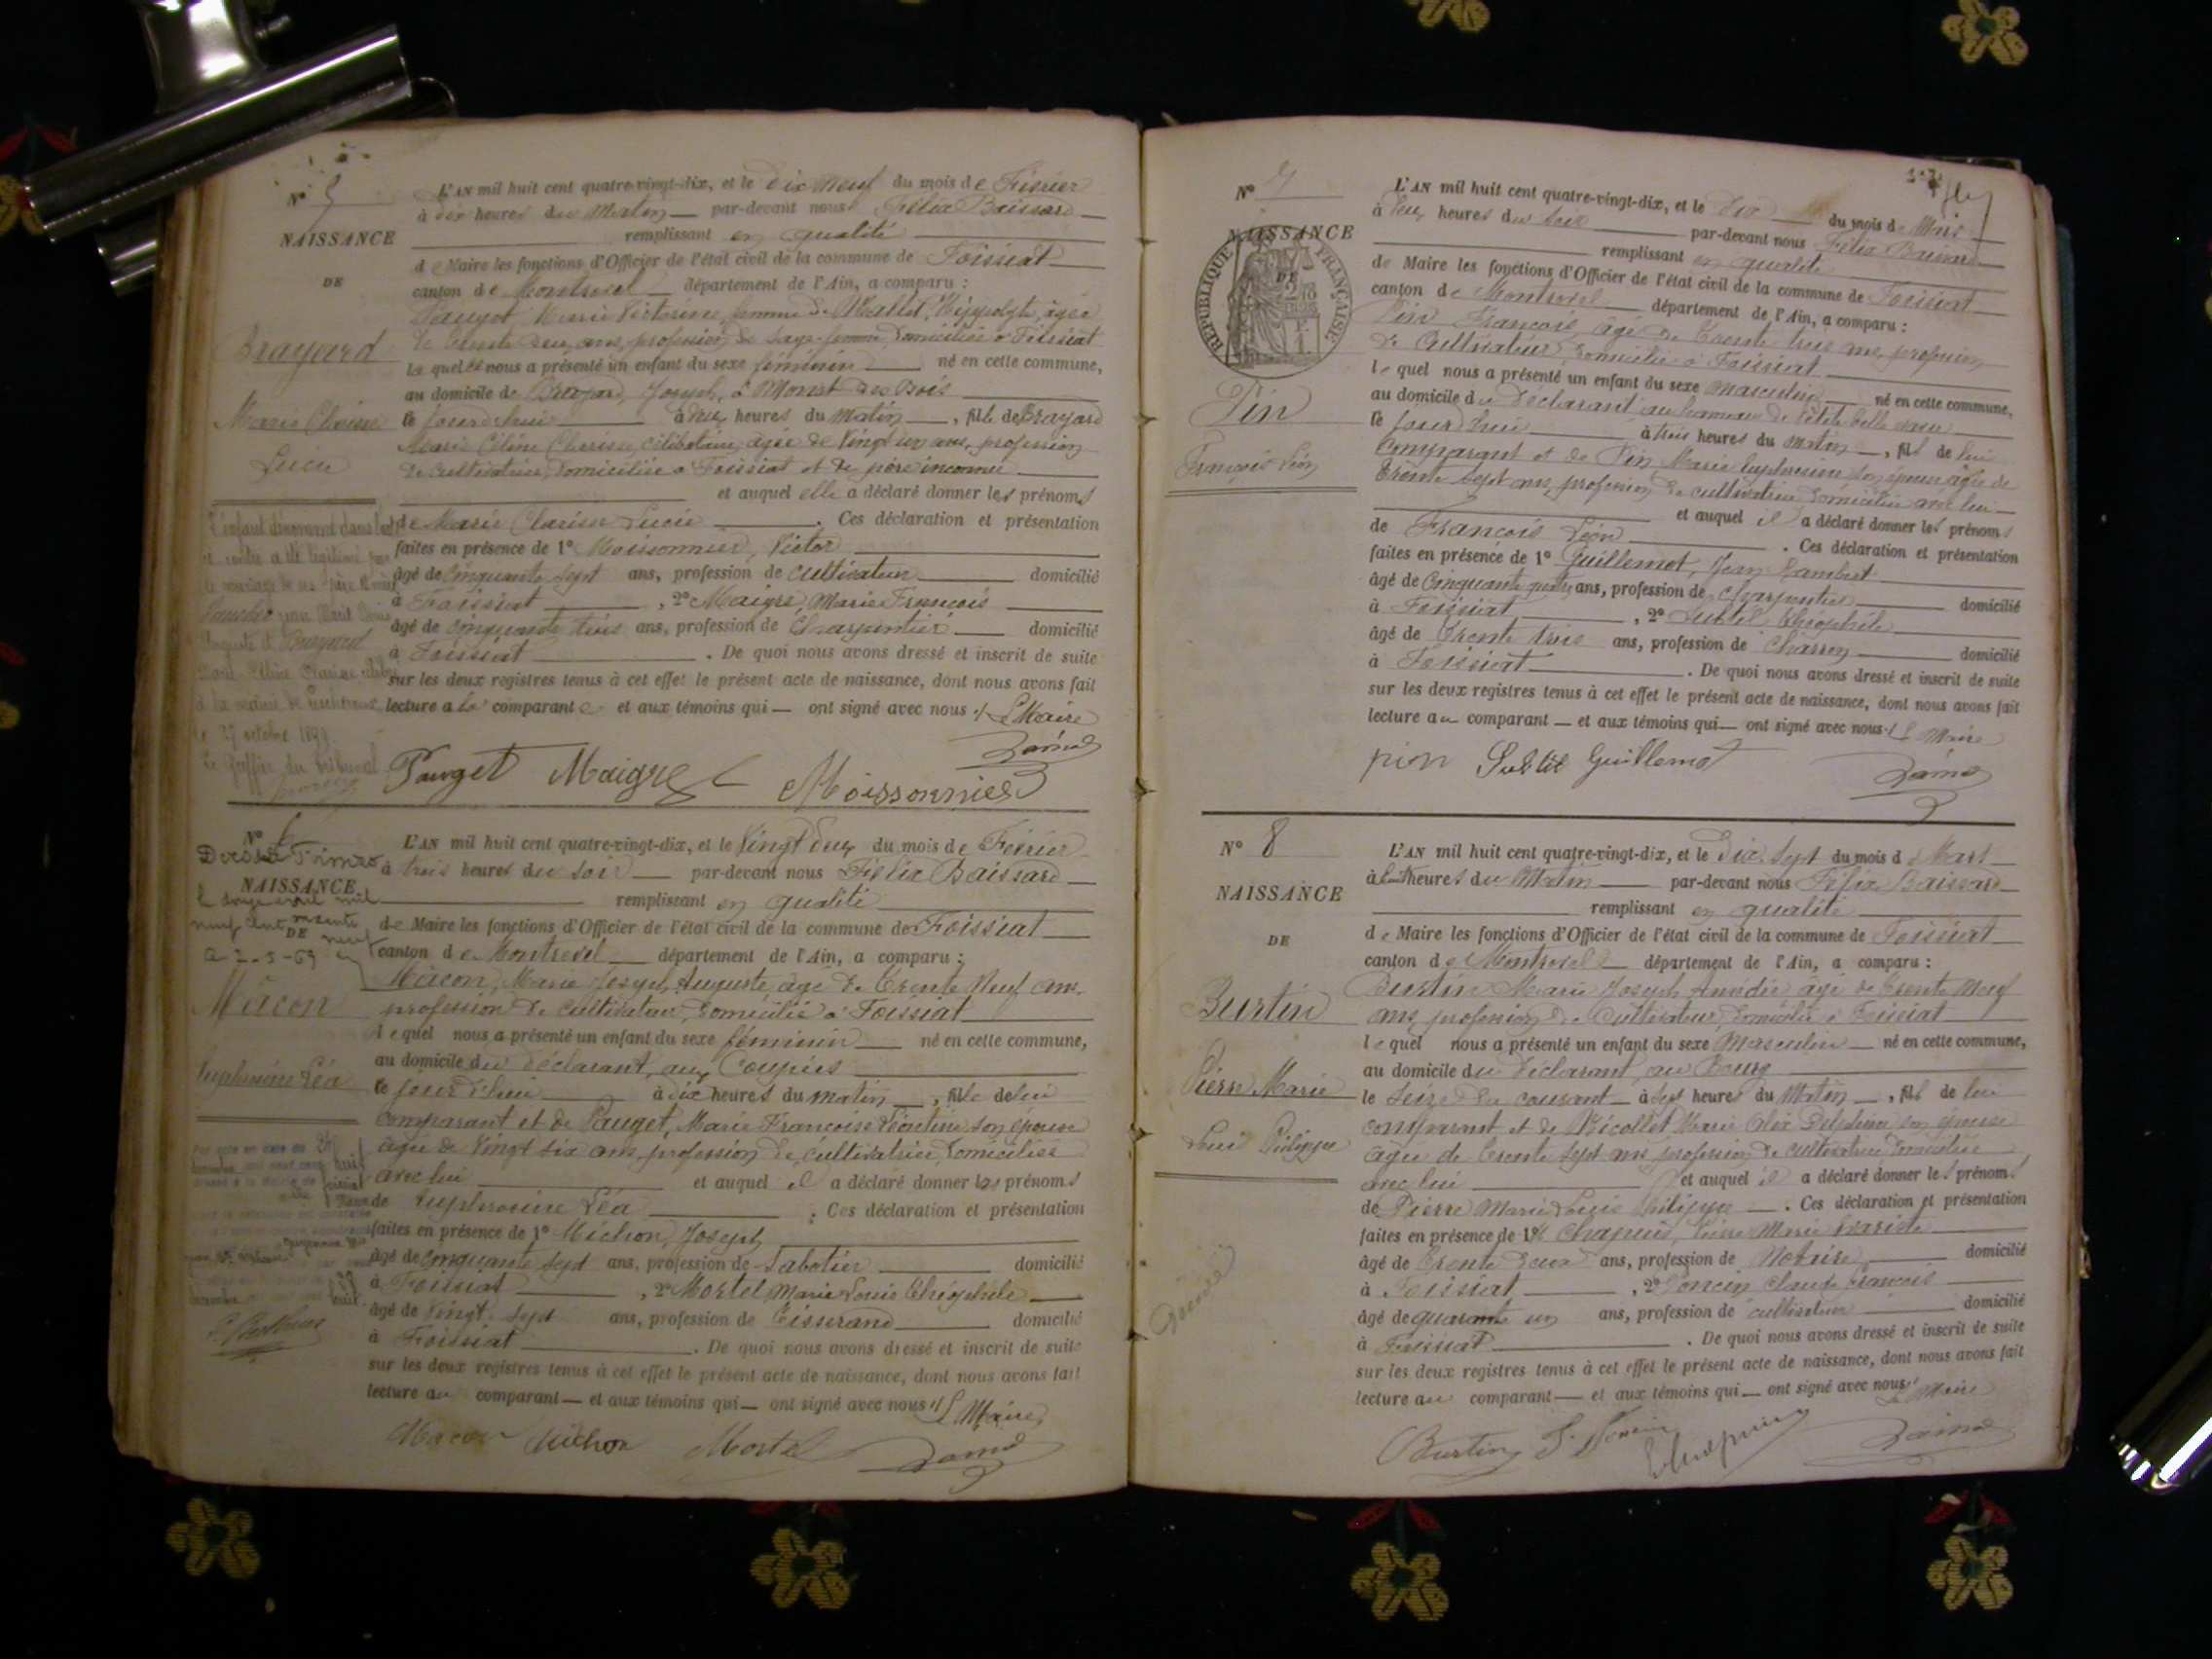 N° 5
NAISSANCE
DE
Brayard
Marie Clarisse
Lucie
L'AN mil huit cent quatre-vingt-dix, et le dix neuf du mois de Février
à dix heures du Matin par-devant nous Félix Baissard
remplissant en qualité
de Maire les fonctions d'Officier de l'état civil de la commune de Foissiat
canton de Montrevel département de l'Ain, a comparu :
Pauget Marie Victorine femme de Mallet Hippolyte, âgée
de trente deux ans, profession de Sage-femme, domiciliée à Foissiat
laquelle nous a présenté un enfant du sexe féminin né en cette commune,
au domicile de Brayard, Joseph, à Monet des Bois
le jourd'hui à deux heures du matin, fille de Brayard
Marie Céline Clarisse, célibataire, âgée de Vingt un ans, profession
de cultivatrice, domiciliée à Foissiat et de père inconnu
et auquel elle a déclaré donner les prénoms
de Marie Clarisse Lucie . Ces déclaration et présentation
faites en présence de 1° Moissonnier, Victor
âgé de cinquante sept ans, profession de cultivateur domicilié
à Foissiat , 2° Maigre, Marie François
âgé de cinquante trois ans, profession de Charpentier domicilié
à Foissiat . De quoi nous avons dressé et inscrit de suite
sur les deux registres tenus à cet effet le présent acte de naissance, dont nous avons fait
lecture à la comparante et aux témoins qui ont signé avec nous. Le Maire
L'enfant dénommé dans l'acte
ci contre a été légitimé par
le mariage de ses père et mère
Marie
Auguste et Brayard
Céline Clarisse célébré
à la mairie de
le 27 octobre
Le Greffier du tribunal
Pauget Maigre Moissonnier
N° 6
NAISSANCE
DE
Décédée
le douze avril mil
neuf cent
Mâcon
Euphrosine Léa
L'AN mil huit cent quatre-vingt-dix, et le Vingt deux du mois de Février
à trois heures du soir par-devant nous Félix Baissard
remplissant en qualité
de Maire les fonctions d'Officier de l'état civil de la commune de Foissiat
canton de Montrevel département de l'Ain, a comparu :
Mâcon, Marie Joseph Auguste, âgé de trente Neuf ans,
profession de Cultivateur, domicilié à Foissiat
lequel nous a présenté un enfant du sexe féminin né en cette commune,
au domicile du déclarant, aux Coupies
le jourd'hui à dix heures du matin, fille de lui
comparant et de Pauget, Marie Françoise Léontine son épouse
âgée de Vingt six ans, profession de cultivatrice, domiciliée
avec lui et auquel il a déclaré donner les prénoms
de Euphrosine Léa . Ces déclaration et présentation
faites en présence de 1° Michon, Joseph
âgé de cinquante sept ans, profession de Sabotier domicilié
à Foissiat , 2° Mortel Marie Louis Théophile
âgé de Vingt sept ans, profession de Tisserand domicilié
à Foissiat . De quoi nous avons dressé et inscrit de suite
sur les deux registres tenus à cet effet le présent acte de naissance, dont nous avons fait
lecture au comparant et aux témoins qui ont signé avec nous. Le Maire
Macon Michon Mortel
N° 7
NAISSANCE
DE
RÉPUBLIQUE FRANÇAISE
Pin
François Léon
L'AN mil huit cent quatre-vingt-dix, et le dix du mois de Mars
à deux heures du soir par-devant nous Félix Baissard
remplissant en qualité
de Maire les fonctions d'Officier de l'état civil de la commune de Foissiat
canton de Montrevel département de l'Ain, a comparu :
Pin François âgé de trente trois ans, profession
de Cultivateur, domicilié à Foissiat
lequel nous a présenté un enfant du sexe masculin né en cette commune,
au domicile du Déclarant au hameau de
le jourd'hui à trois heures du matin, fils de lui
comparant et de Pin Marie Euphrosine son épouse âgée de
trente sept ans, profession de cultivatrice domiciliée avec lui
et auquel il a déclaré donner les prénoms
de François Léon . Ces déclaration et présentation
faites en présence de 1° Guillemot, Jean Lambert
âgé de Cinquante quatre ans, profession de Charpentier domicilié
à Foissiat , 2° Subtil Théophile
âgé de trente trois ans, profession de Charron domicilié
à Foissiat . De quoi nous avons dressé et inscrit de suite
sur les deux registres tenus à cet effet le présent acte de naissance, dont nous avons fait
lecture au comparant et aux témoins qui ont signé avec nous. Le Maire
pin Subtil Guillemot
N° 8
NAISSANCE
DE
Burtin
Pierre Marie
Louis Philippe
L'AN mil huit cent quatre-vingt-dix, et le Dix Sept du mois de Mars
à huit heures du Matin par-devant nous Félix Baissard
remplissant en qualité
de Maire les fonctions d'Officier de l'état civil de la commune de Foissiat
canton de Montrevel département de l'Ain, a comparu :
Burtin Marie Joseph Amédée âgé de trente Neuf
ans, profession de Cultivateur, domicilié à Foissiat
lequel nous a présenté un enfant du sexe Masculin né en cette commune,
au domicile du Déclarant, au Bourg
le Seize du courant à Sept heures du Matin, fils de lui
comparant et de Nicollet Marie Alix Delphine son épouse
âgée de trente Sept ans, profession de cultivatrice domiciliée
avec lui et auquel il a déclaré donner les prénoms
de Pierre Marie Louis Philippe . Ces déclaration et présentation
faites en présence de 1° Chapuis, Pierre Marie
âgé de trente deux ans, profession de Notaire domicilié
à Foissiat , 2° Poncin Claude François
âgé de quarante un ans, profession de cultivateur domicilié
à Foissiat . De quoi nous avons dressé et inscrit de suite
sur les deux registres tenus à cet effet le présent acte de naissance, dont nous avons fait
lecture au comparant et aux témoins qui ont signé avec nous. Le Maire
Burtin